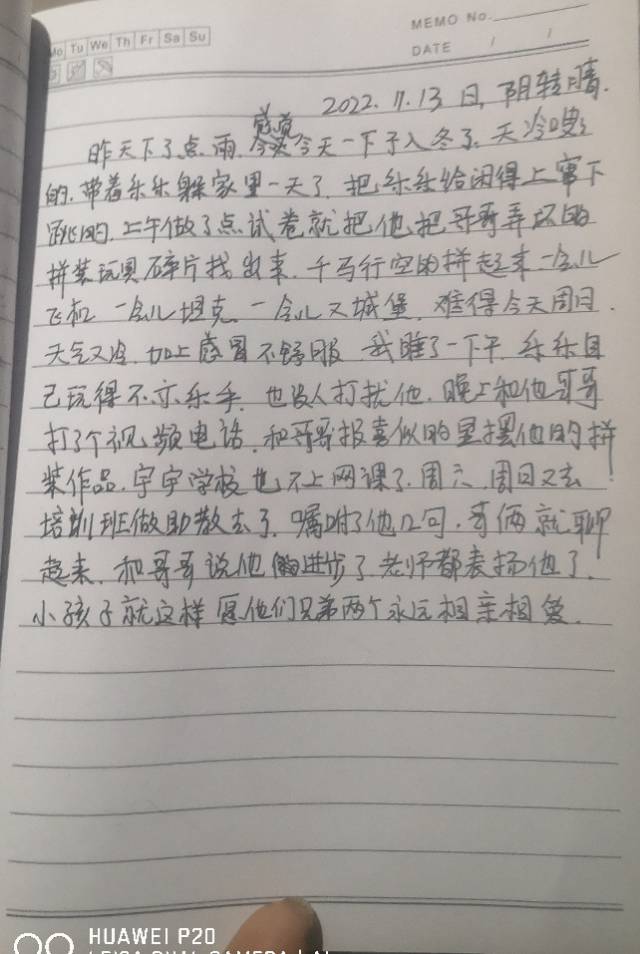 Mo Tu We Th Fr Sa Su
MEMO No.
DATE / /
2022.11.13 日,阴转晴.
昨天下了点雨,感觉今天一下子入冬了,天冷嗖嗖
的.带着乐乐躲家里一天了,把乐乐给闲得上窜下
跳的,上午做了点试卷就把他把哥哥弄坏的
拼装玩具碎片找出来,千马行空的拼起来一会儿
飞机 一会儿坦克 一会儿又城堡,难得今天周日,
天气又冷,加上感冒不舒服,我睡了一下午,乐乐自
己玩得不亦乐乎,也没人打扰他,晚上和他哥哥
打了个视频电话,和哥哥报喜似的显摆他的拼
装作品,宇宇学校也不上网课了,周六,周日又去
培训班做助教去了,嘱咐了他几句,哥俩就聊
起来,和哥哥说他的进步了 老师都表扬他了,
小孩子就这样 愿他们兄弟两个永远相亲相爱.
HUAWEI P20
LEICA DUAL CAMERA | AI